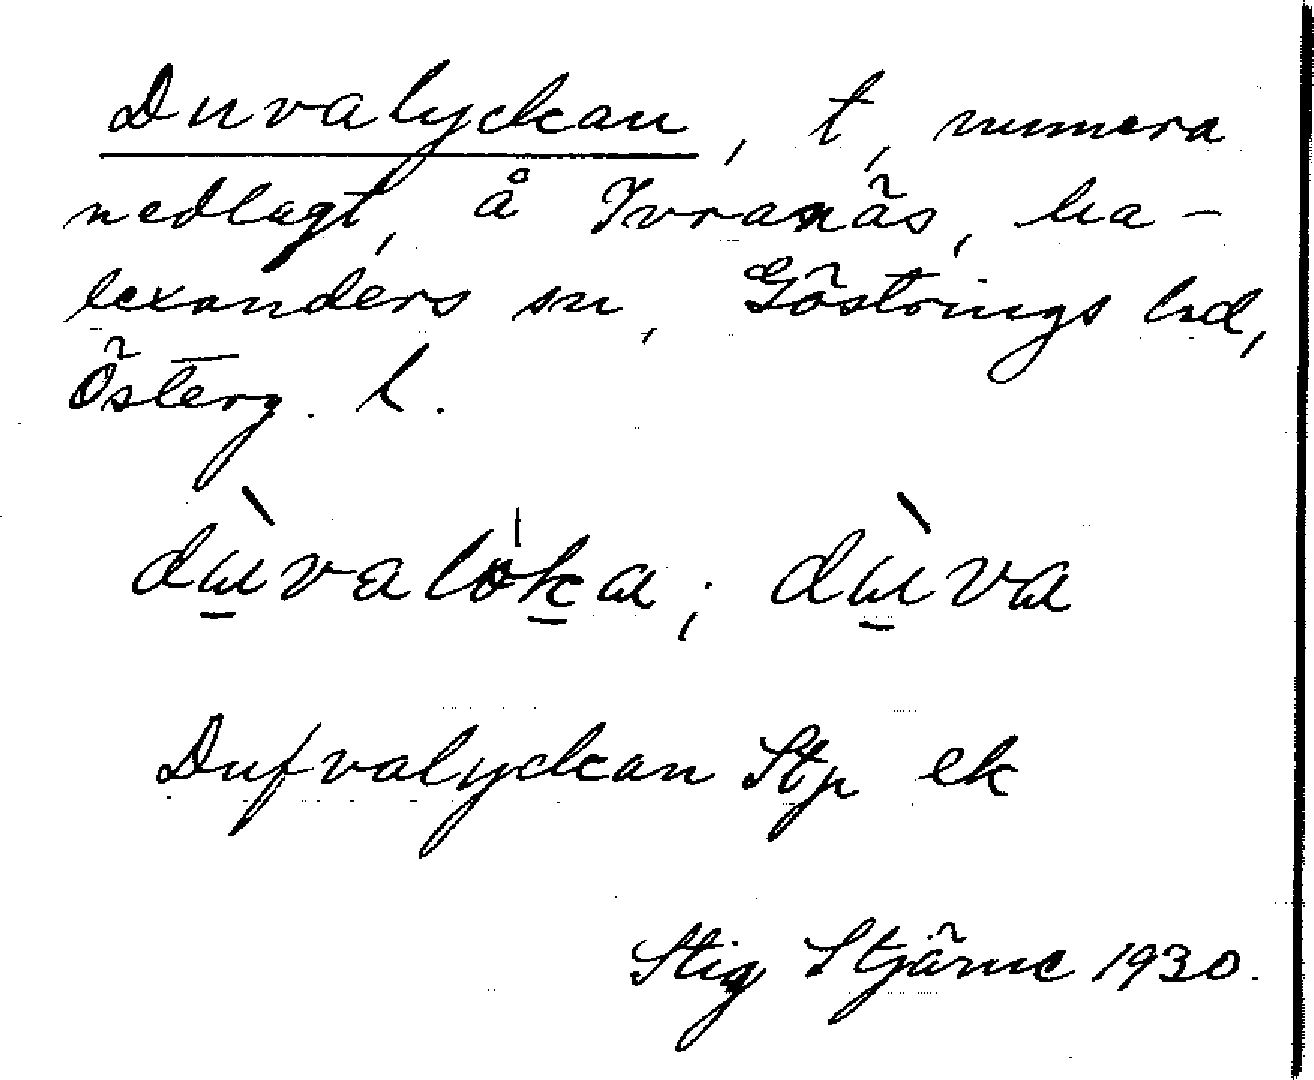 Duvalyckan, t, numera
nedlagt, å Ivranäs, ka-
lexanders sn, Göstrings hd,
Österg. l.
dùvalöka; dùva
Dufvalyckan Stp ek
Stig Stjärne 1930.